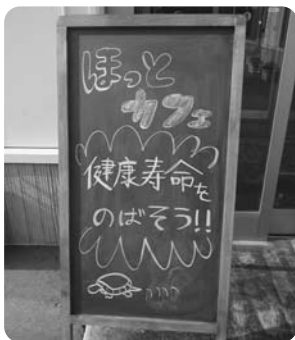 ほっと
カフェ
健康寿命を
のばそう!!